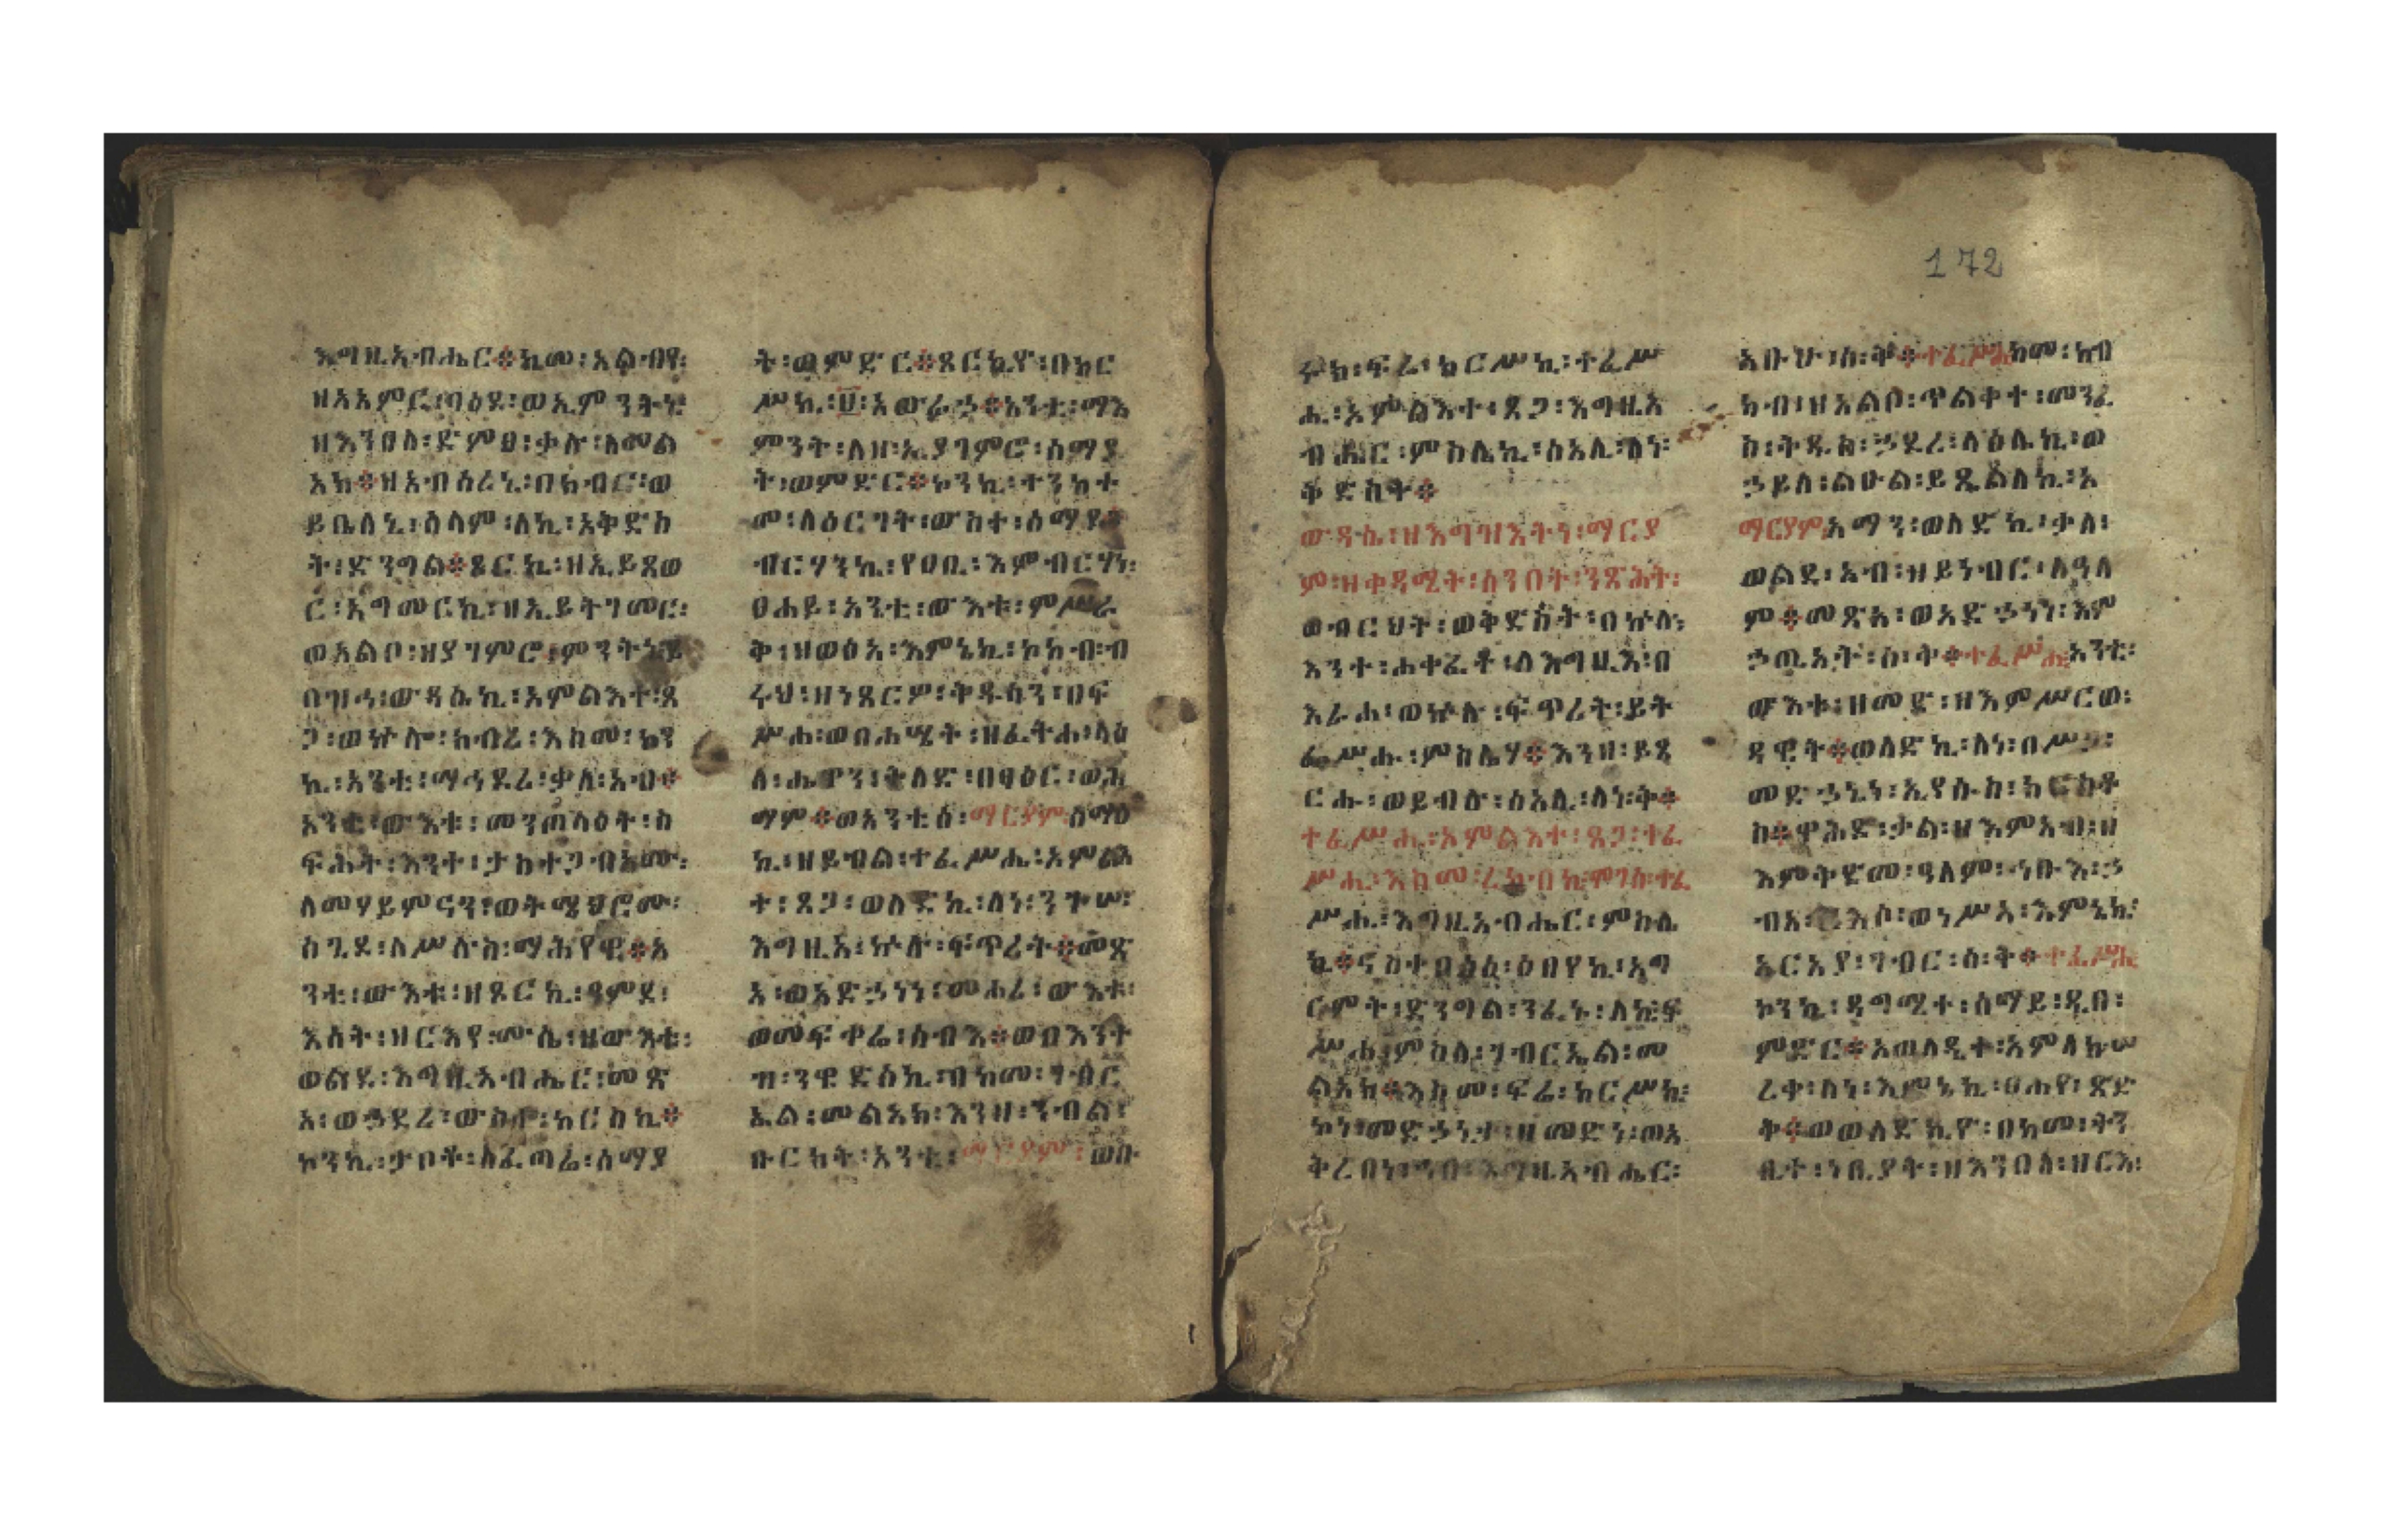 እግዚአብሔር፨ከመ፡አልብየ፡
ዘአአምር፡ባዕደ፡ወኢምንትኒ
ዘእንበለ፡ድምፀ፡ቃሉ፡ለመል
አክ፨ዘአብሰረኒ፡በክብር፡ወ
ይቤለኒ፡ሰላም፡ለኪ፡አቅድስ
ት፡ድንግል፨ጾርኪ፡ዘኢይጸወ
ር፡አግመርኪ፡ዘኢይትገመር፡
ወአልቦ፡ዘያገምሮ፡ምንትኒ፡ይ
በዝኅ፡ውዳሴኪ፡አምልእተ፡ጸ
ጋ፡ወኵሎ፡ክብረ፡እስመ፡ኮን
ኪ፡አንቲ፡ማኅደረ፡ቃለ፡አብ፨
አንቲ፡ውእቱ፡መንጦላዕት፡ስ
ፍሕት፡እንተ፡ታስተጋብኦሙ፡
ለመሃይምናን፡ወትሜህሮሙ፡
ስጊደ፡ለሥሉስ፡ማሕየዊ፨አ
ንቲ፡ውእቱ፡ዘጾርኪ፡ዓምደ፡
እሳት፡ዘርእየ፡ሙሴ፡ዘውእቱ፡
ወልደ፡እግዚአብሔር፡መጽ
አ፡ወኃደረ፡ውስተ፡ከርስኪ፨
ኮንኪ፡ታቦቶ፡ለፈጣሬ፡ሰማያ
ት፡ወምድር፨ጾርኪዮ፡በከር
ሥኪ፡፱፡አውራኃ፨አንቲ፡ማእ
ምንት፡ለዘ፡ኢያገምሮ፡ሰማያ
ት፡ወምድር፨ኮንኪ፡ተንከተ
መ፡ለዕርገት፡ውስተ፡ሰማያት
ብርሃንኪ፡የዐቢ፡እምብርሃነ፡
ፀሐይ፡አንቲ፡ውእቱ፡ምሥራ
ቅ፡ዘወፅአ፡እምኔኪ፡ኮከብ፡ብ
ሩህ፡ዘነጸርዎ፡ቅዱሳን፡በፍ
ሥሐ፡ወበሐሤት፡ዘፈትሐ፡ላዕ
ለ፡ሔዋን፡ትለድ፡በፃዕር፡ወሕ
ማም፨ወአንቲሰ፡ማርያም፡ሰማዕ
ኪ፡ዘይብል፡ተፈሥሒ፡አምልእ
ተ፡ጸጋ፡ወለድኪ፡ለነ፡ንጉሠ፡
እግዚአ፡ኵሉ፡ፍጥረት፨መጽ
አ፡ወአድኃነነ፡መሐሪ፡ውእቱ፡
ወመፍቀሬ፡ሰብእ፨ወበእንተ
ዝ፡ንዌድሰኪ፡በከመ፡ገብር
ኤል፡መልአክ፡እንዘ፡ንብል፡
ቡርክት፡አንቲ፡ማርያም፡ወቡ
ሩክ፡ፍሬ፡ከርሥኪ፡ተፈሥ
ሒ፡አምልእተ፡ጸጋ፡እግዚአ
ብሔር፡ምስሌኪ፡ሰአሊ፡ለነ፡
ቅድስት፨
ውዳሴ፡ዘእግዝእትነ፡ማርያ
ም፡ዘቀዳሚት፡ሰንበት፡ንጽሕት፡
ወብርህት፡ወቅድስት፡በኵሉ፡
እንተ፡ሐቀፈቶ፡ለእግዚእ፡በ
እራሐ፡ወኵሉ፡ፍጥረት፡ይት
ፌሥሑ፡ምስሌሃ፨እንዘ፡ይጼ
ርሑ፡ወይብሉ፡ሰአሊ፡ለነ፡ቅ፨
ተፈሥሒ፡አምልእተ፡ጸጋ፡ተፈ
ሥሒ፡እስመ፡ረከብኪ፡ሞገሰ፡ተፈ
ሥሒ፡እግዚአብሔር፡ምስሌ
ኪ፨ናስተበፅዕ፡ዕበየኪ፡አግ
ርምት፡ድንግል፡ንፌኑ፡ለኪ፡ፍ
ሥሐ፡ምስለ፡ገብርኤል፡መ
ልአክ፨እስመ፡ፍሬ፡ከርሥኪ፡
ኮነ፡መድኃኒተ፡ዘመድነ፡ወአ
ቅረበነ፡ኀበ፡እግዚአብሔር፡
አቡሁ፡ሰ፡ቅ፨ተፈሥሒከመ፡ከብ
ከብ፡ዘአልቦ፡ጥልቀተ፡መንፈ
ስ፡ቅዱስ፡ኃደረ፡ላዕሌኪ፡ወ
ኃይለ፡ልዑል፡ይጼልለኪ፡አ
ማርያምአማን፡ወለድኪ፡ቃለ፡
ወልደ፡አብ፡ዘይነብር፡ለዓለ
ም፨መጽአ፡ወአድኃነነ፡እም
ኃጢአት፡ሰ፡ቅ፨ተፈሥሒ፡አንቲ፡
ውእቱ፡ዘመድ፡ዘእምሥርወ፡
ዳዊት፨ወለድኪ፡ለነ፡በሥጋ፡
መድኃኒነ፡ኢየሱስ፡ክርስቶ
ስ፨ዋሕድ፡ቃል፡ዘእምአብ፡ዘ
እምቅድመ፡ዓለም፡ኀቡእ፡ኃ
ብአ፡ርእሶ፡ወነሥአ፡እምኔኪ፡
አርአያ፡ገብር፡ሰ፡ቅ፨ተፈሥሒ
ኮንኪ፡ዳግሚተ፡ሰማይ፡ዲበ፡
ምድር፨አወላዲተ፡አምላክሠ
ረቀ፡ለነ፡እምኔኪ፡ፀሐየ፡ጽድ
ቅ፨ወወለድኪዮ፡በከመ፡ትን
ቢተ፡ነቢያት፡ዘእንበለ፡ዘርእ፡